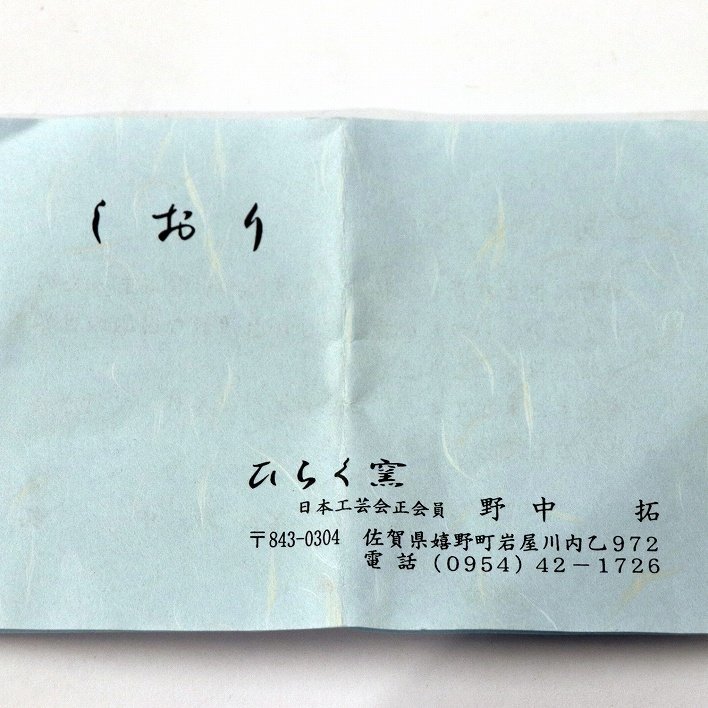 しおり
ひらく窯
日本工芸会正会員 野中 拓
〒843-0304 佐賀県嬉野町岩屋川内乙972
電話(0954)42-1726